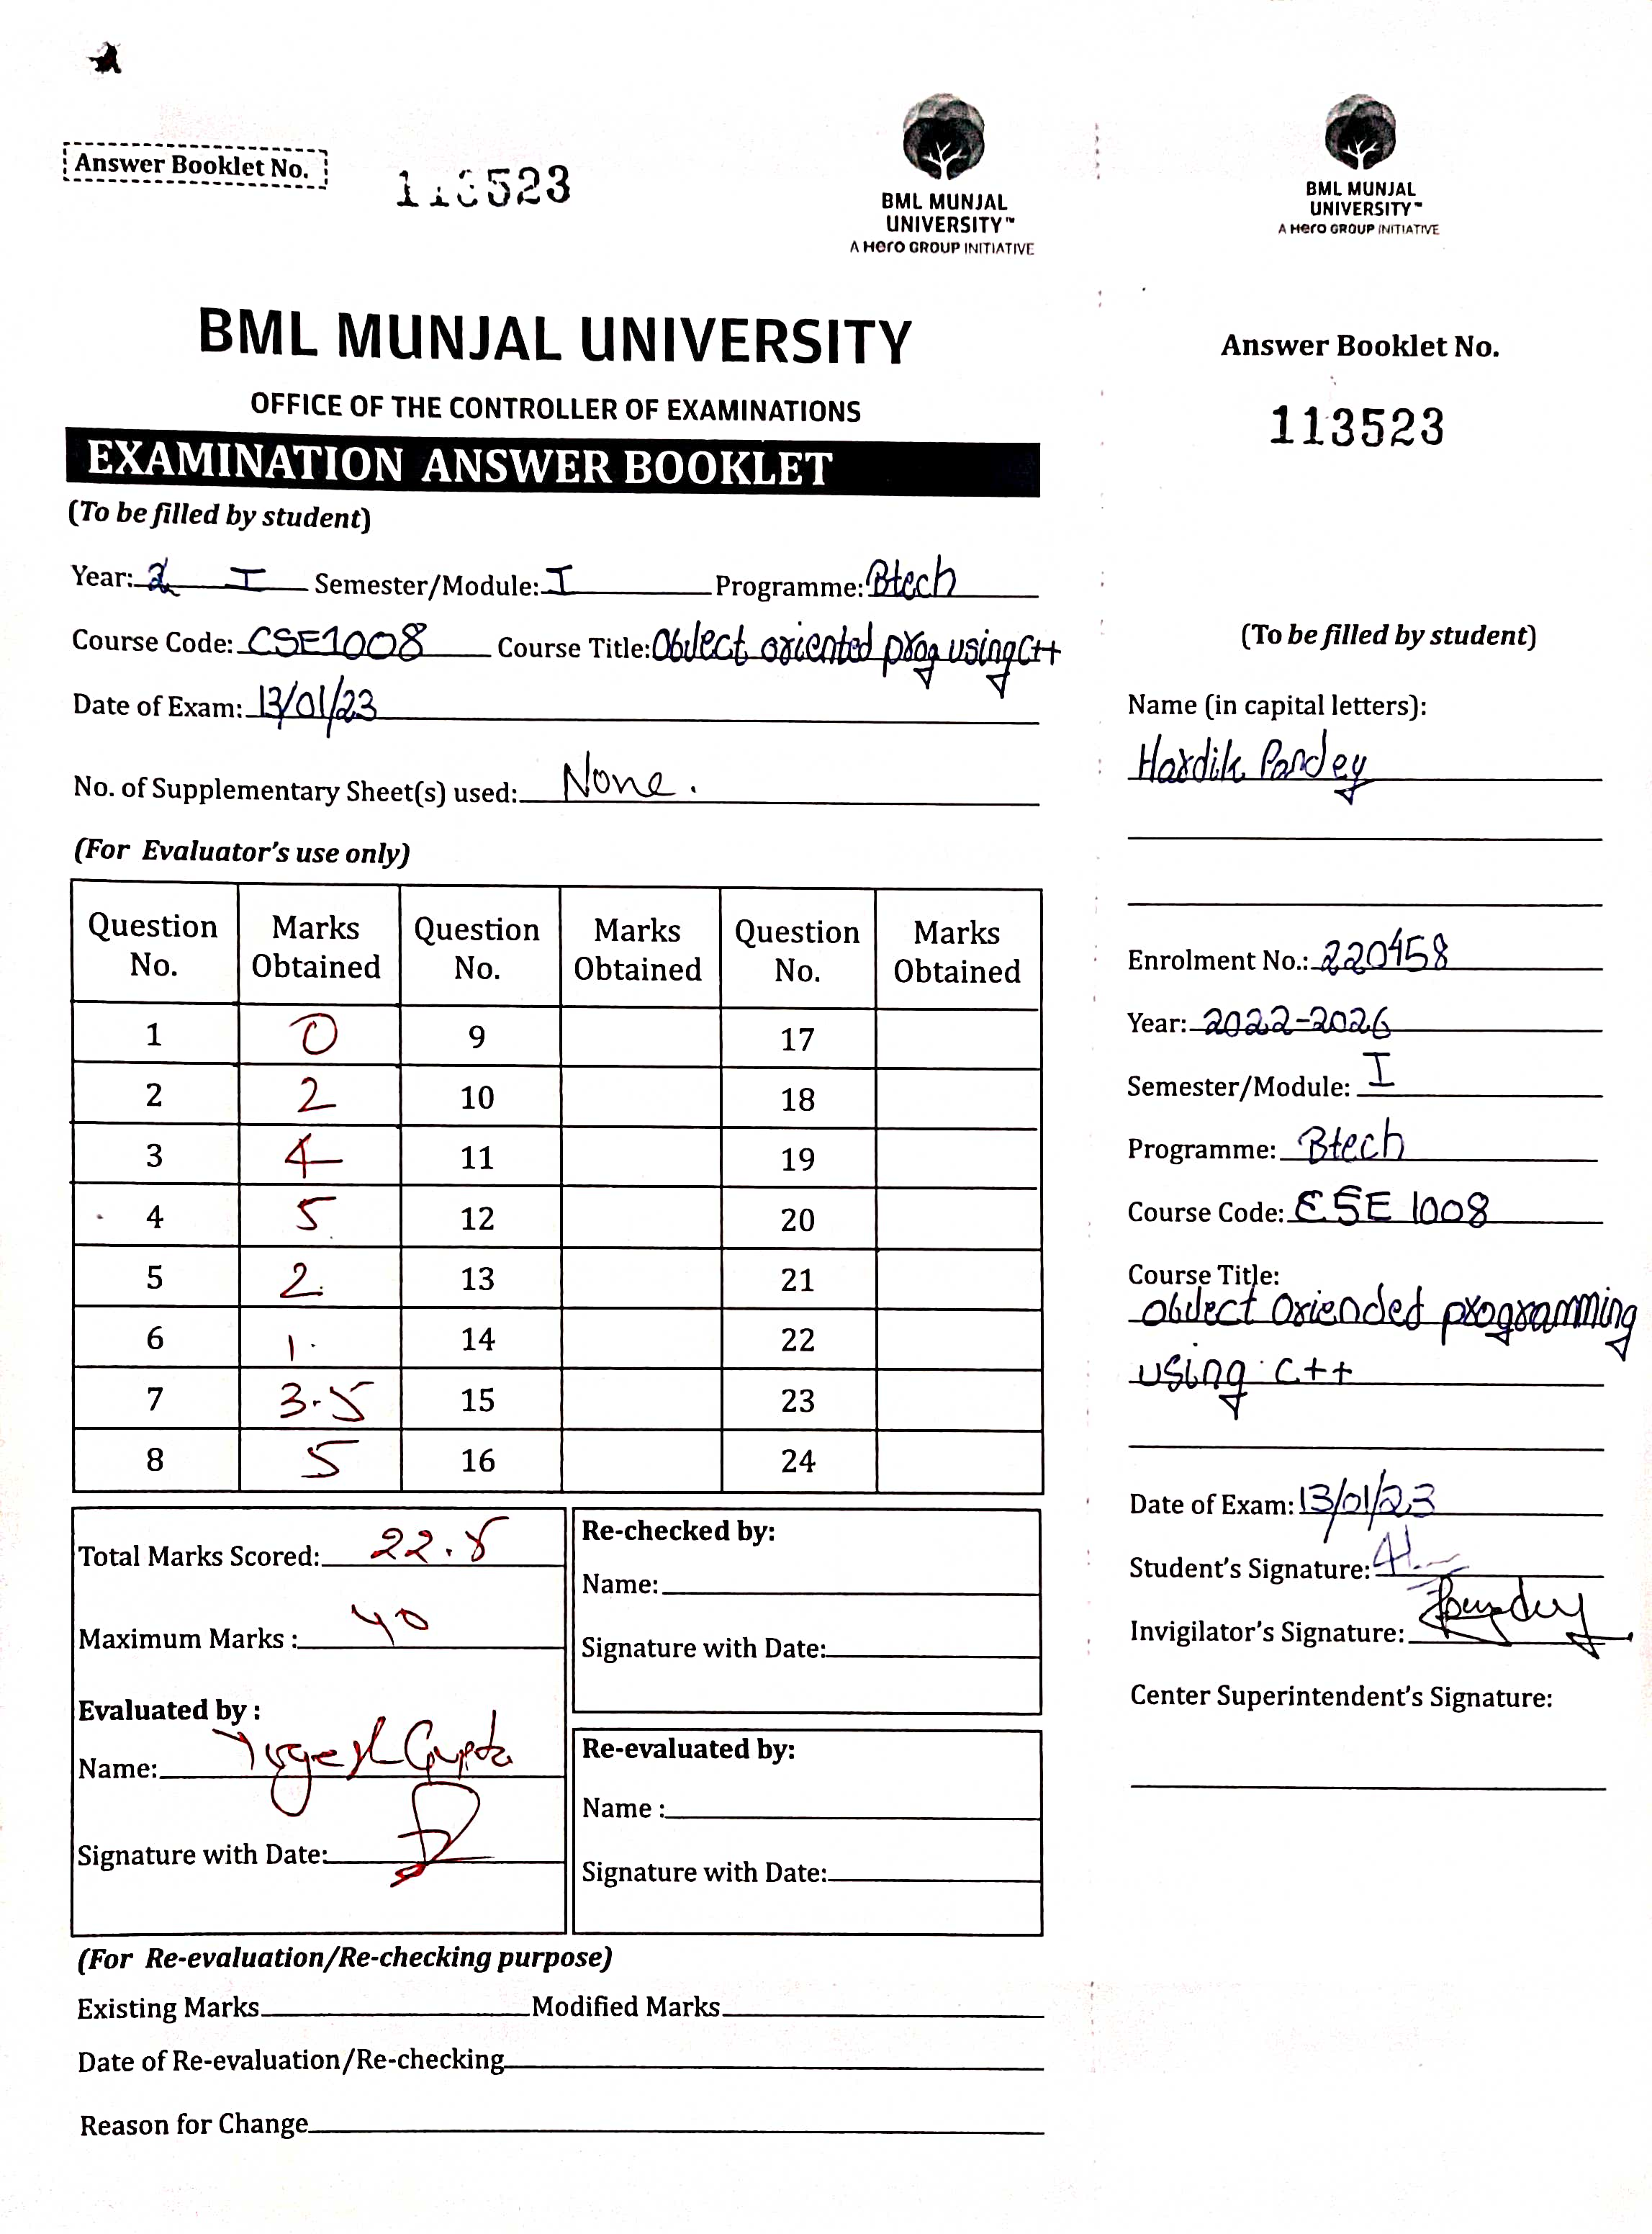 Answer Booklet No.
113523
BML MUNJAL
UNIVERSITY™
A Hero GROUP INITIATIVE
BML MUNJAL UNIVERSITY
OFFICE OF THE CONTROLLER OF EXAMINATIONS
EXAMINATION ANSWER BOOKLET
(To be filled by student)
Year: I Semester/Module: I Programme: Btech
Course Code: CSE1008 Course Title: Object oriented prog using C++
Date of Exam: 13/01/23
No. of Supplementary Sheet(s) used: None.
(For Evaluator's use only)
Question No. Marks Obtained Question No. Marks Obtained Question No. Marks Obtained
1 0 9 17
2 2 10 18
3 4 11 19
4 5 12 20
5 2 13 21
6 1 14 22
7 3.5 15 23
8 5 16 24
Total Marks Scored: 22.5
Maximum Marks : 40
Evaluated by :
Name: Gupta
Signature with Date:
Re-checked by:
Name:
Signature with Date:
Re-evaluated by:
Name :
Signature with Date:
(For Re-evaluation/Re-checking purpose)
Existing Marks Modified Marks
Date of Re-evaluation/Re-checking
Reason for Change
BML MUNJAL
UNIVERSITY™
A Hero GROUP INITIATIVE
Answer Booklet No.
113523
(To be filled by student)
Name (in capital letters):
Hardik Pandey
Enrolment No.: 220458
Year: 2022-2026
Semester/Module: I
Programme: Btech
Course Code: CSE 1008
Course Title:
Object Oriended programming
using C++
Date of Exam: 13/01/23
Student's Signature:
Invigilator's Signature:
Center Superintendent's Signature: